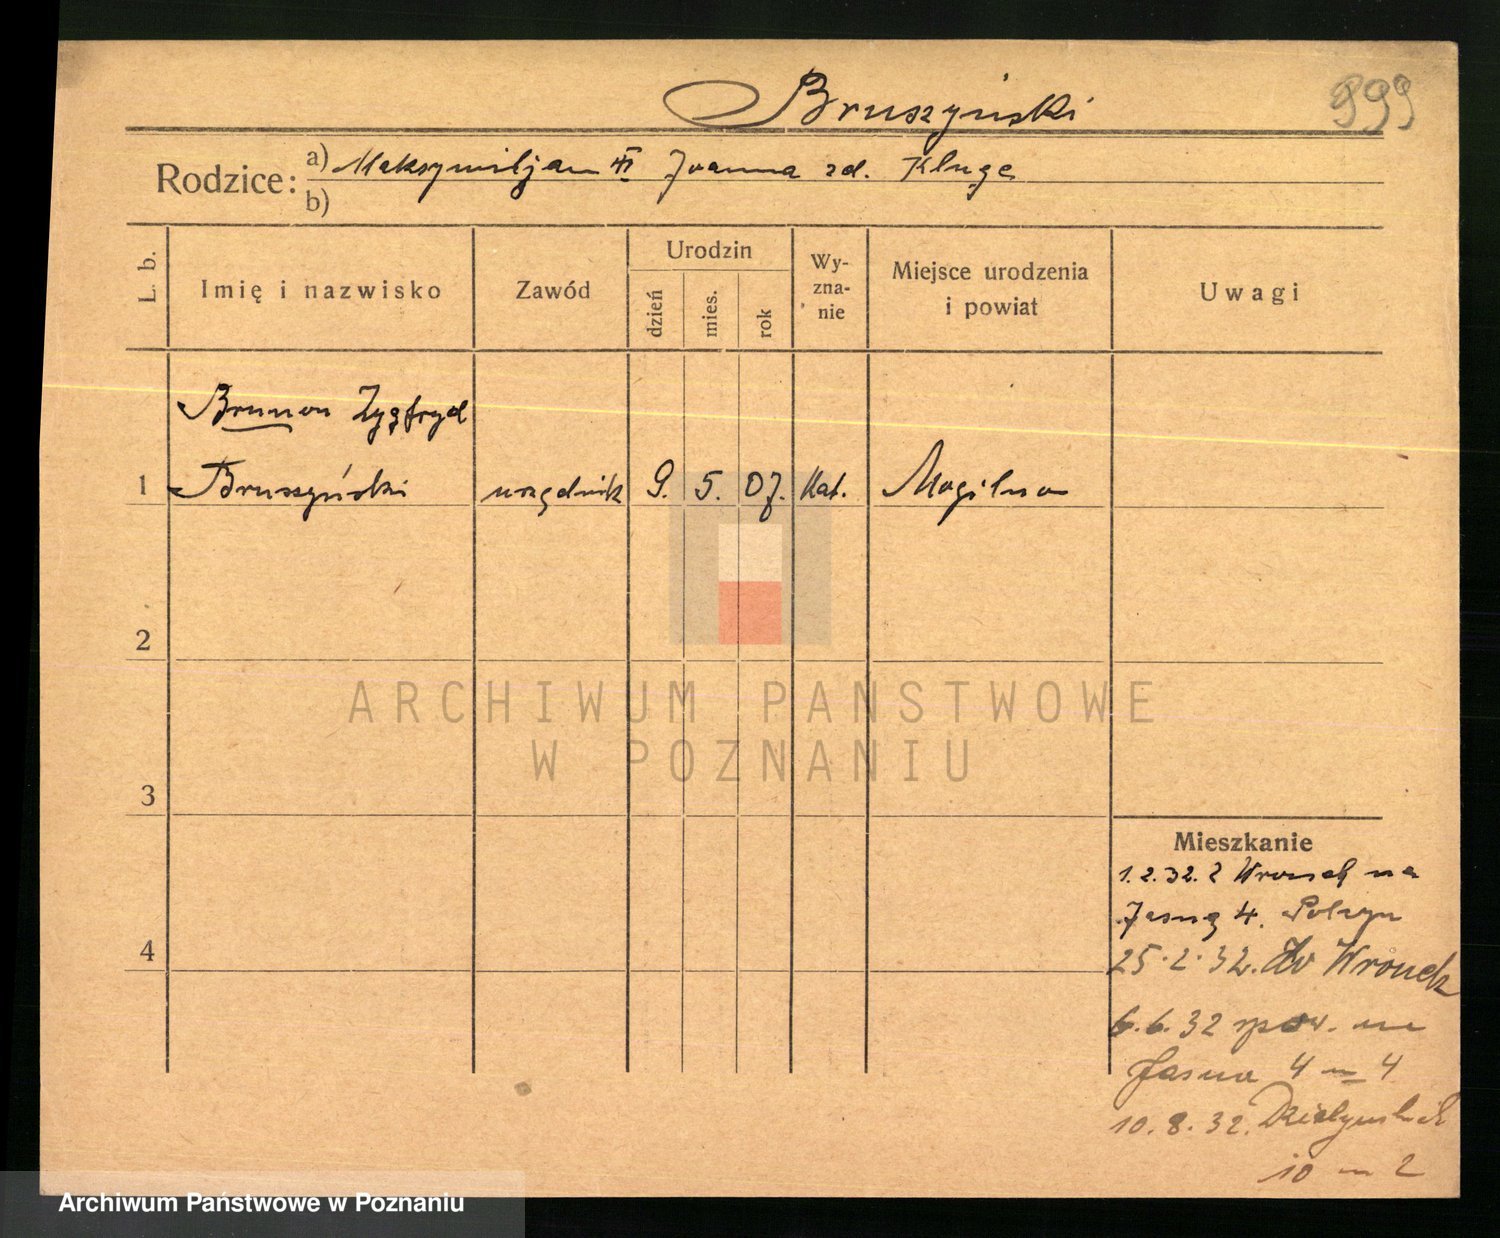 Bruszyński
999
Rodzice:
a) Maksymiljan Joanna zd. Kluge
b)
L. b.
Imię i nazwisko
Zawód
Urodzin
dzień
mies.
rok
Wy-
zna-
nie
Miejsce urodzenia
i powiat
Uwagi
Brunon Zygfryd
1 Bruszyński urzędnik 9. 5. 07. Kat. Mogilno
2
3
4
ARCHIWUM PAŃSTWOWE
W POZNANIU
Mieszkanie
1.2.32. z Wronek na
Jasną 4.
25.2.32. do Wronek
6.6.32 spow. na
Jasna 4 m 4
10.8.32. Działyńskich
10 m 2
Archiwum Państwowe w Poznaniu